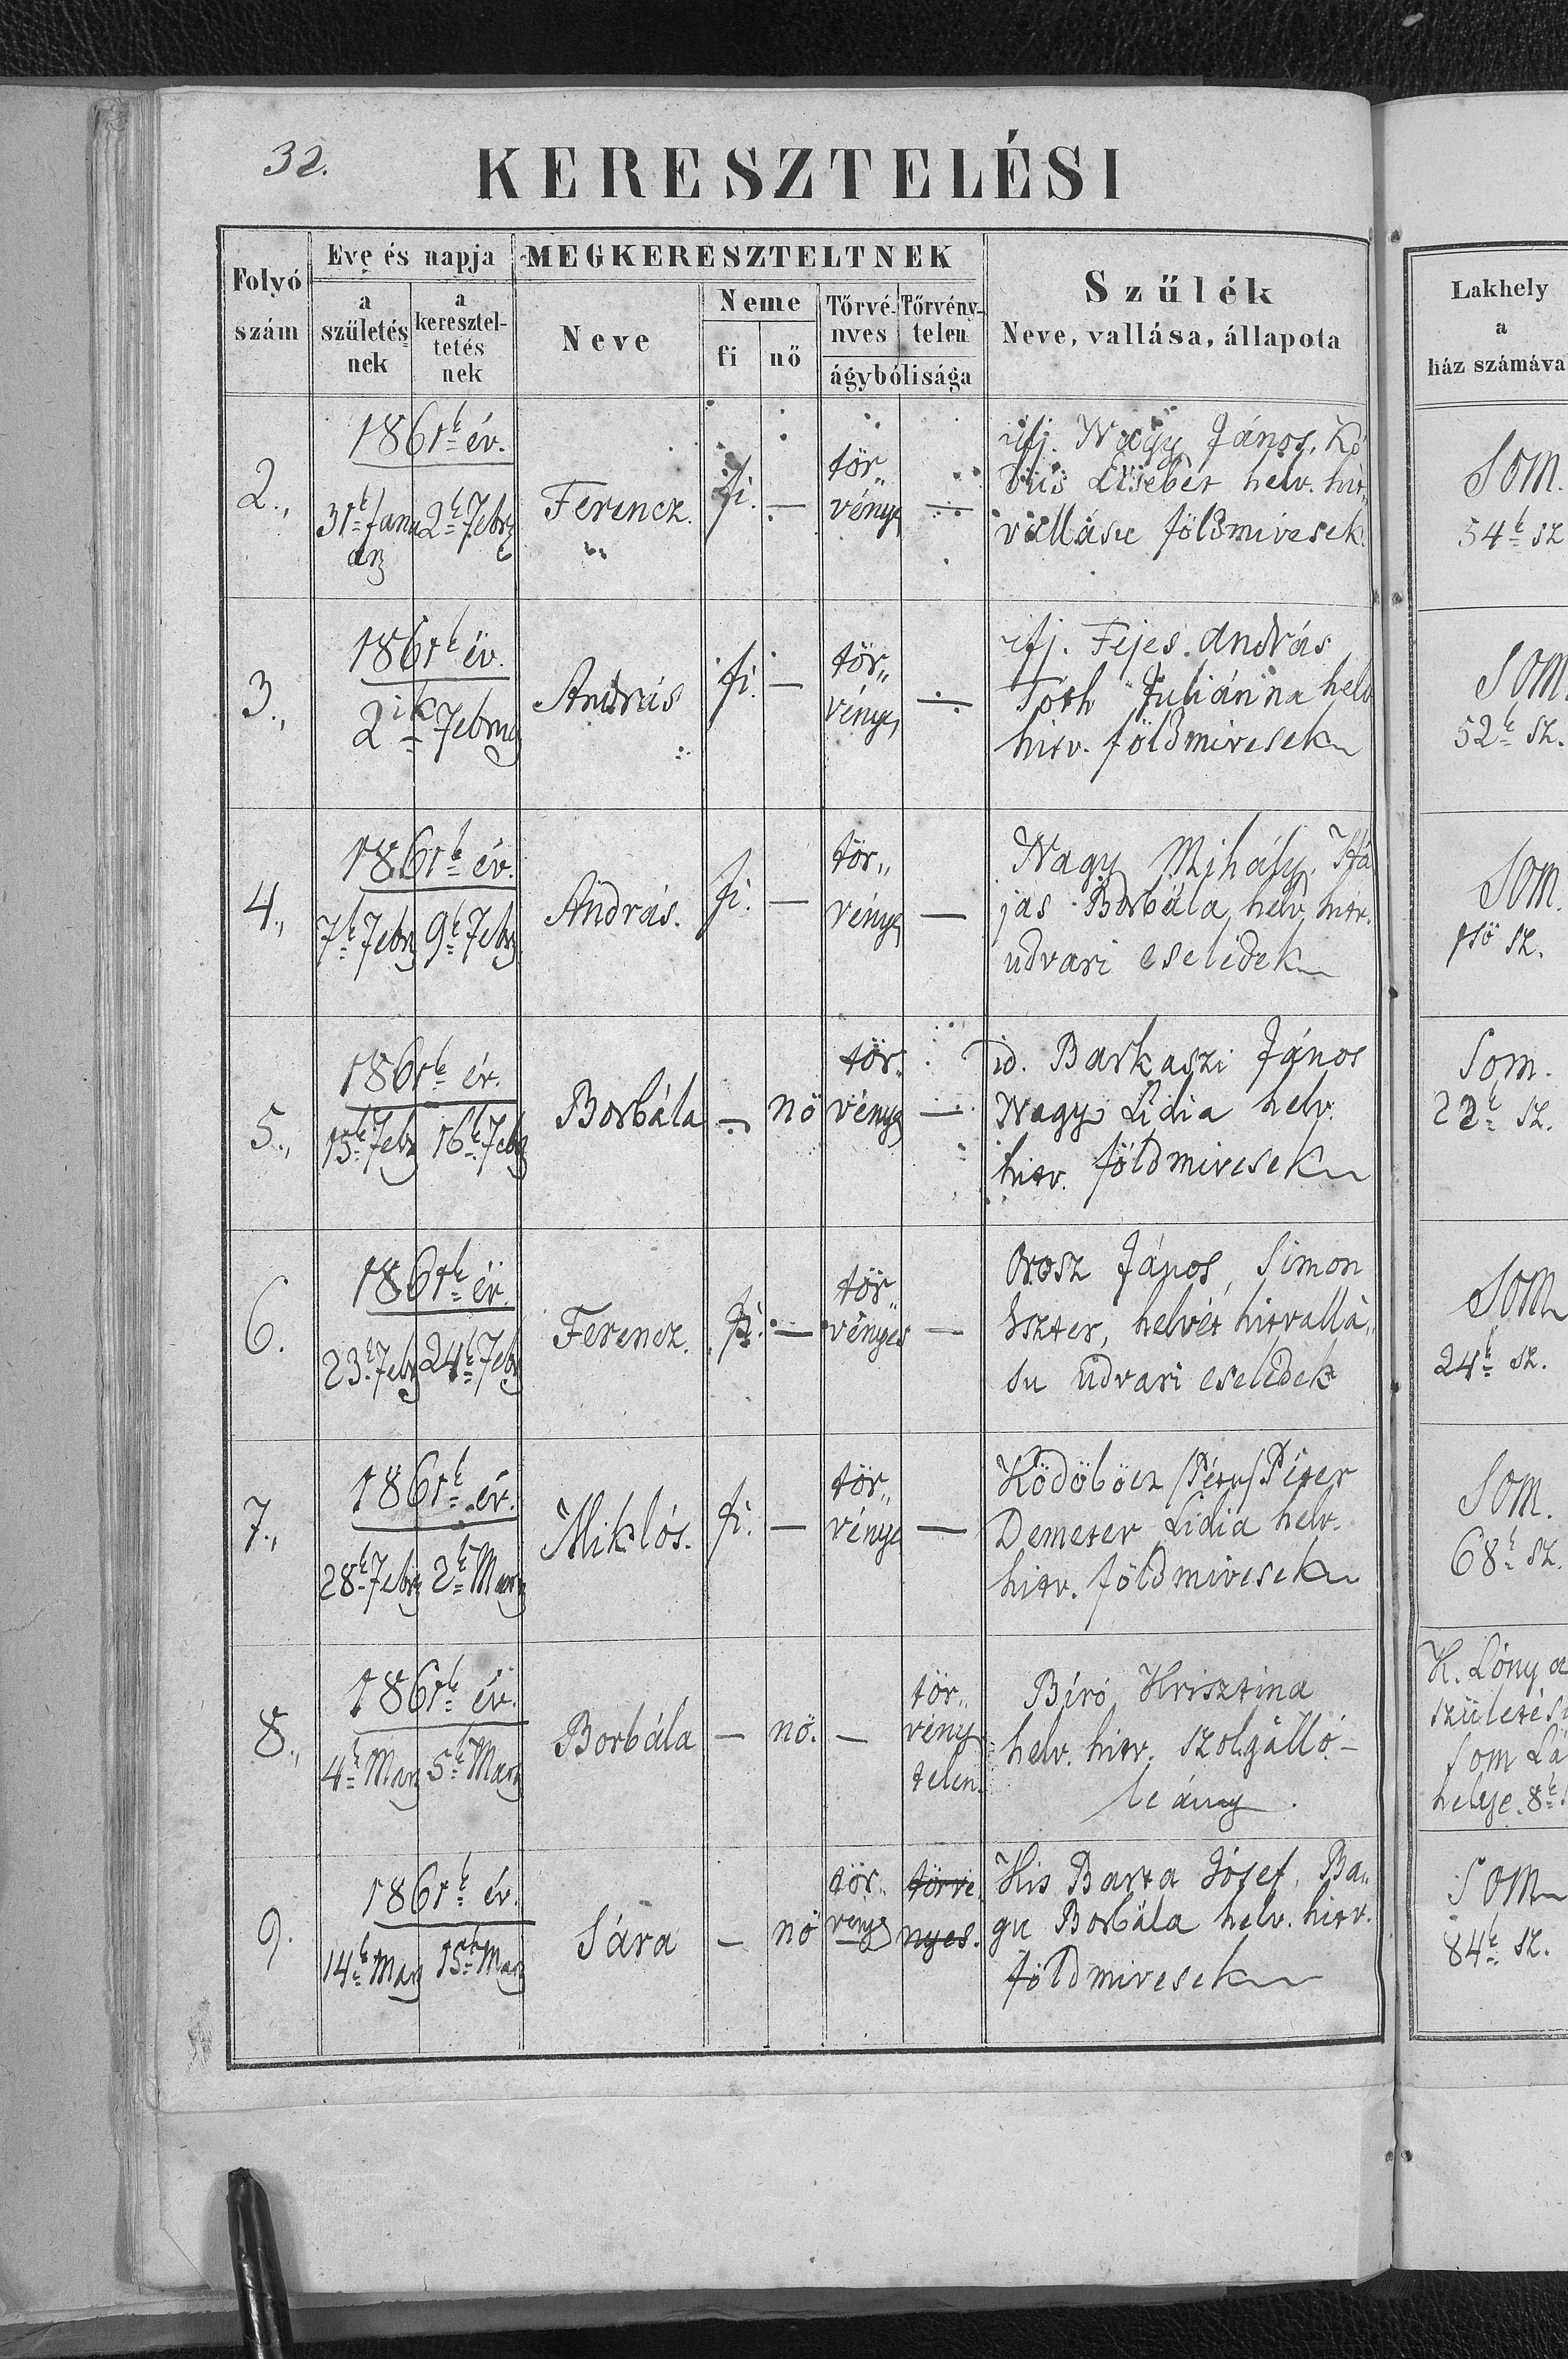 32.
KERESZTELÉSI
Folyó szám
Eve és napja
a születésnek
a keresztel-tetésnek
MEGKERESZTELTNEK
Neve
Neme
fi
nő
Törvé-nyes
Törvény-telen
ágybólisága
Szűlék
Neve, vallása, állapota
Lakhely
a
ház számáva
2.,
1861k év.
31k Janu
ar
2k Febr
Ferencz.
fi.
—
tör„
vényes
—
ifj. Nagy János, Kó
bus Ersebet helv. hit„
vallásu földmivesek.
Som.
54k sz
3.,
1861k év.
2ik Februar
András
fi.
—
tör„
vényes
—
ifj. Fejes András
Toth Juliánna helv
hitv. földmivesek
Som
52k sz.
4.,
1861k év.
7k Febr
9k Febr
András.
fi.
—
tör„
vényes
—
Nagy Mihály, Ha
jas Borbála, helv. hitv.
udvari cselédek
Som.
1ső sz.
5.,
1861k év.
15k Febr
16k Febr
Borbála
—
nő
tör„
vényes
—
id. Barkaszi János
Nagy Lidia helv.
hitv. földmivesek
Som.
22k sz.
6.
1861k év.
23k Febr
24k Febr
Ferencz.
fi.
—
tör„
vényes
—
Orosz János, Simon
Eszter, helvét hitvallá„
su udvari cselédek
Som
24k sz.
7.,
1861k év.
28k Febr
2k Marz
Miklós.
fi.
—
tör„
vényes
—
Ködöböcz /Péter/ Péter
Demeter Lidia helv.
hitv. földmivesek
Som.
68k sz.
8.,
1861k év.
4k Marz
5k Marz
Borbála
—
nő.
—
tör„
vény
telen.
Biró Krisztina
helv. hitv. szolgálló-
leány.
K. Lónya
születés
Som La
helye. 8k
9.
1861k év.
14k Marz
15k Marz
Sára
—
nő
tör„
vényes
törvé
nyes.
Kis Barta Josef, Ba„
gu Borbála helv. hitv.
földmivesek
Som
84k sz.